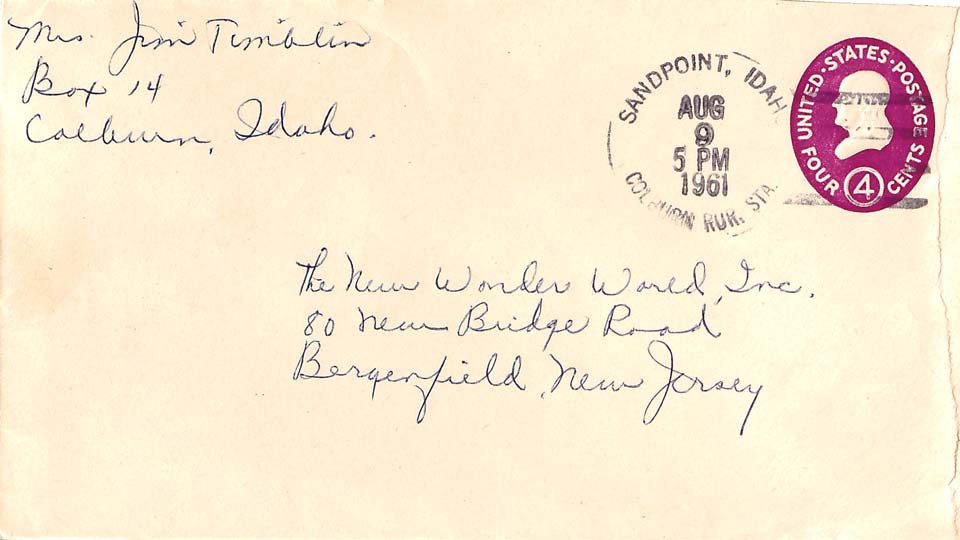 Mrs. Jim Timblin
Box 14
Colburn, Idaho.
SANDPOINT, IDAH
AUG
9
5 PM
1961
COLBURN RUR. STA.
UNITED·STATES·POSTAGE
FOUR 4 CENTS
The New Wonder World, Inc.
80 New Bridge Road
Bergenfield, New Jersey